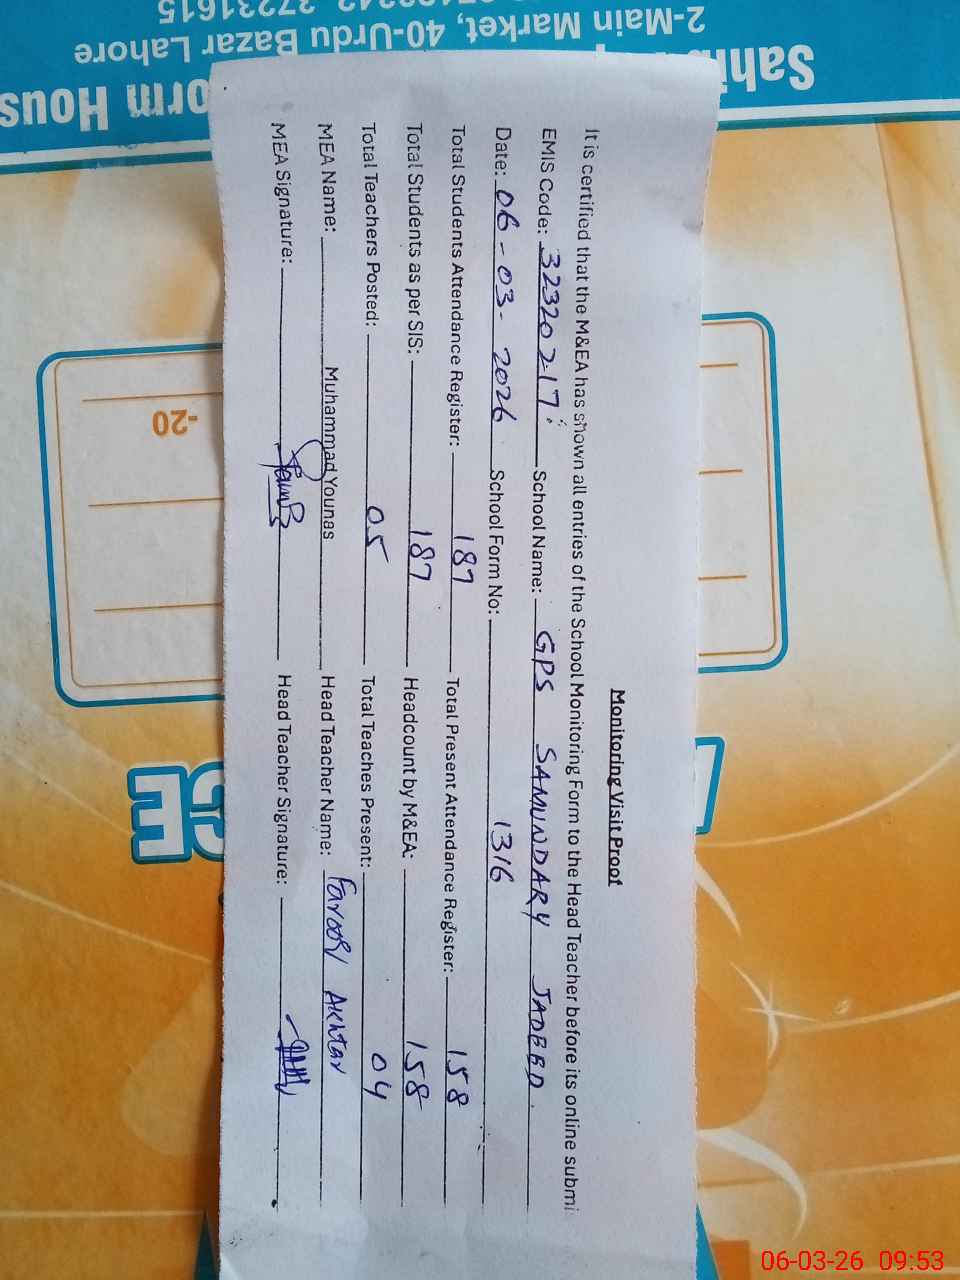 Monitoring Visit Proof
It is certified that the M&EA has shown all entries of the School Monitoring Form to the Head Teacher before its online submi
EMIS Code: 32320217 School Name: GPS SAMUNDARY JADEED
Date: 06-03-2026 School Form No: 1316
Total Students Attendance Register: 187 Total Present Attendance Register: 158
Total Students as per SIS: 187 Headcount by M&EA: 158
Total Teachers Posted: 05 Total Teaches Present: 04
MEA Name: Muhammad Younas Head Teacher Name: Farooq Akhtar
MEA Signature: Head Teacher Signature:
Sahi
orm Hous
2-Main Market, 40-Urdu Bazar Lahore
37231615
-20
CE
06-03-26 09:53